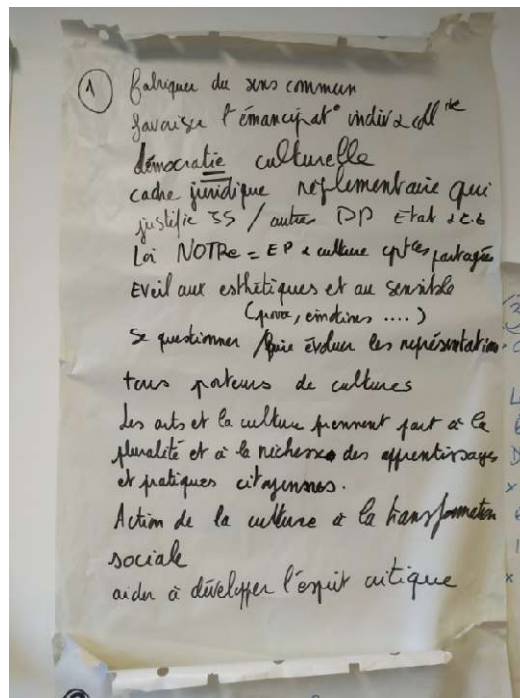 1 fabriquer du sens commun
favoriser l'émancipat° indiv & coll ive
démocratie culturelle
cadre juridique réglementaire qui
justifie / autres PP Etat &
Loi NOTRe = EP & culture cptces partagées
Eveil aux esthétiques et au sensible
(provoc, émotions ....)
Se questionner / faire évoluer les représentation
tous porteurs de cultures
Les arts et la culture prennent part à la
pluralité et à la richesse des apprentissages
et pratiques citoyennes.
Action de la culture à la transformation
sociale
aider à développer l'esprit critique